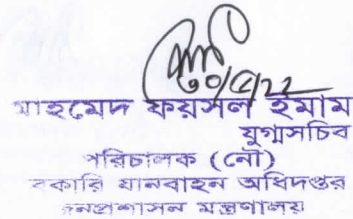 ৩০/৫/২২
আহমেদ ফয়সল ইমাম
যুগ্মসচিব
পরিচালক (নৌ)
রকারি যানবাহন অধিদপ্তর
জনপ্রশাসন মন্ত্রণালয়